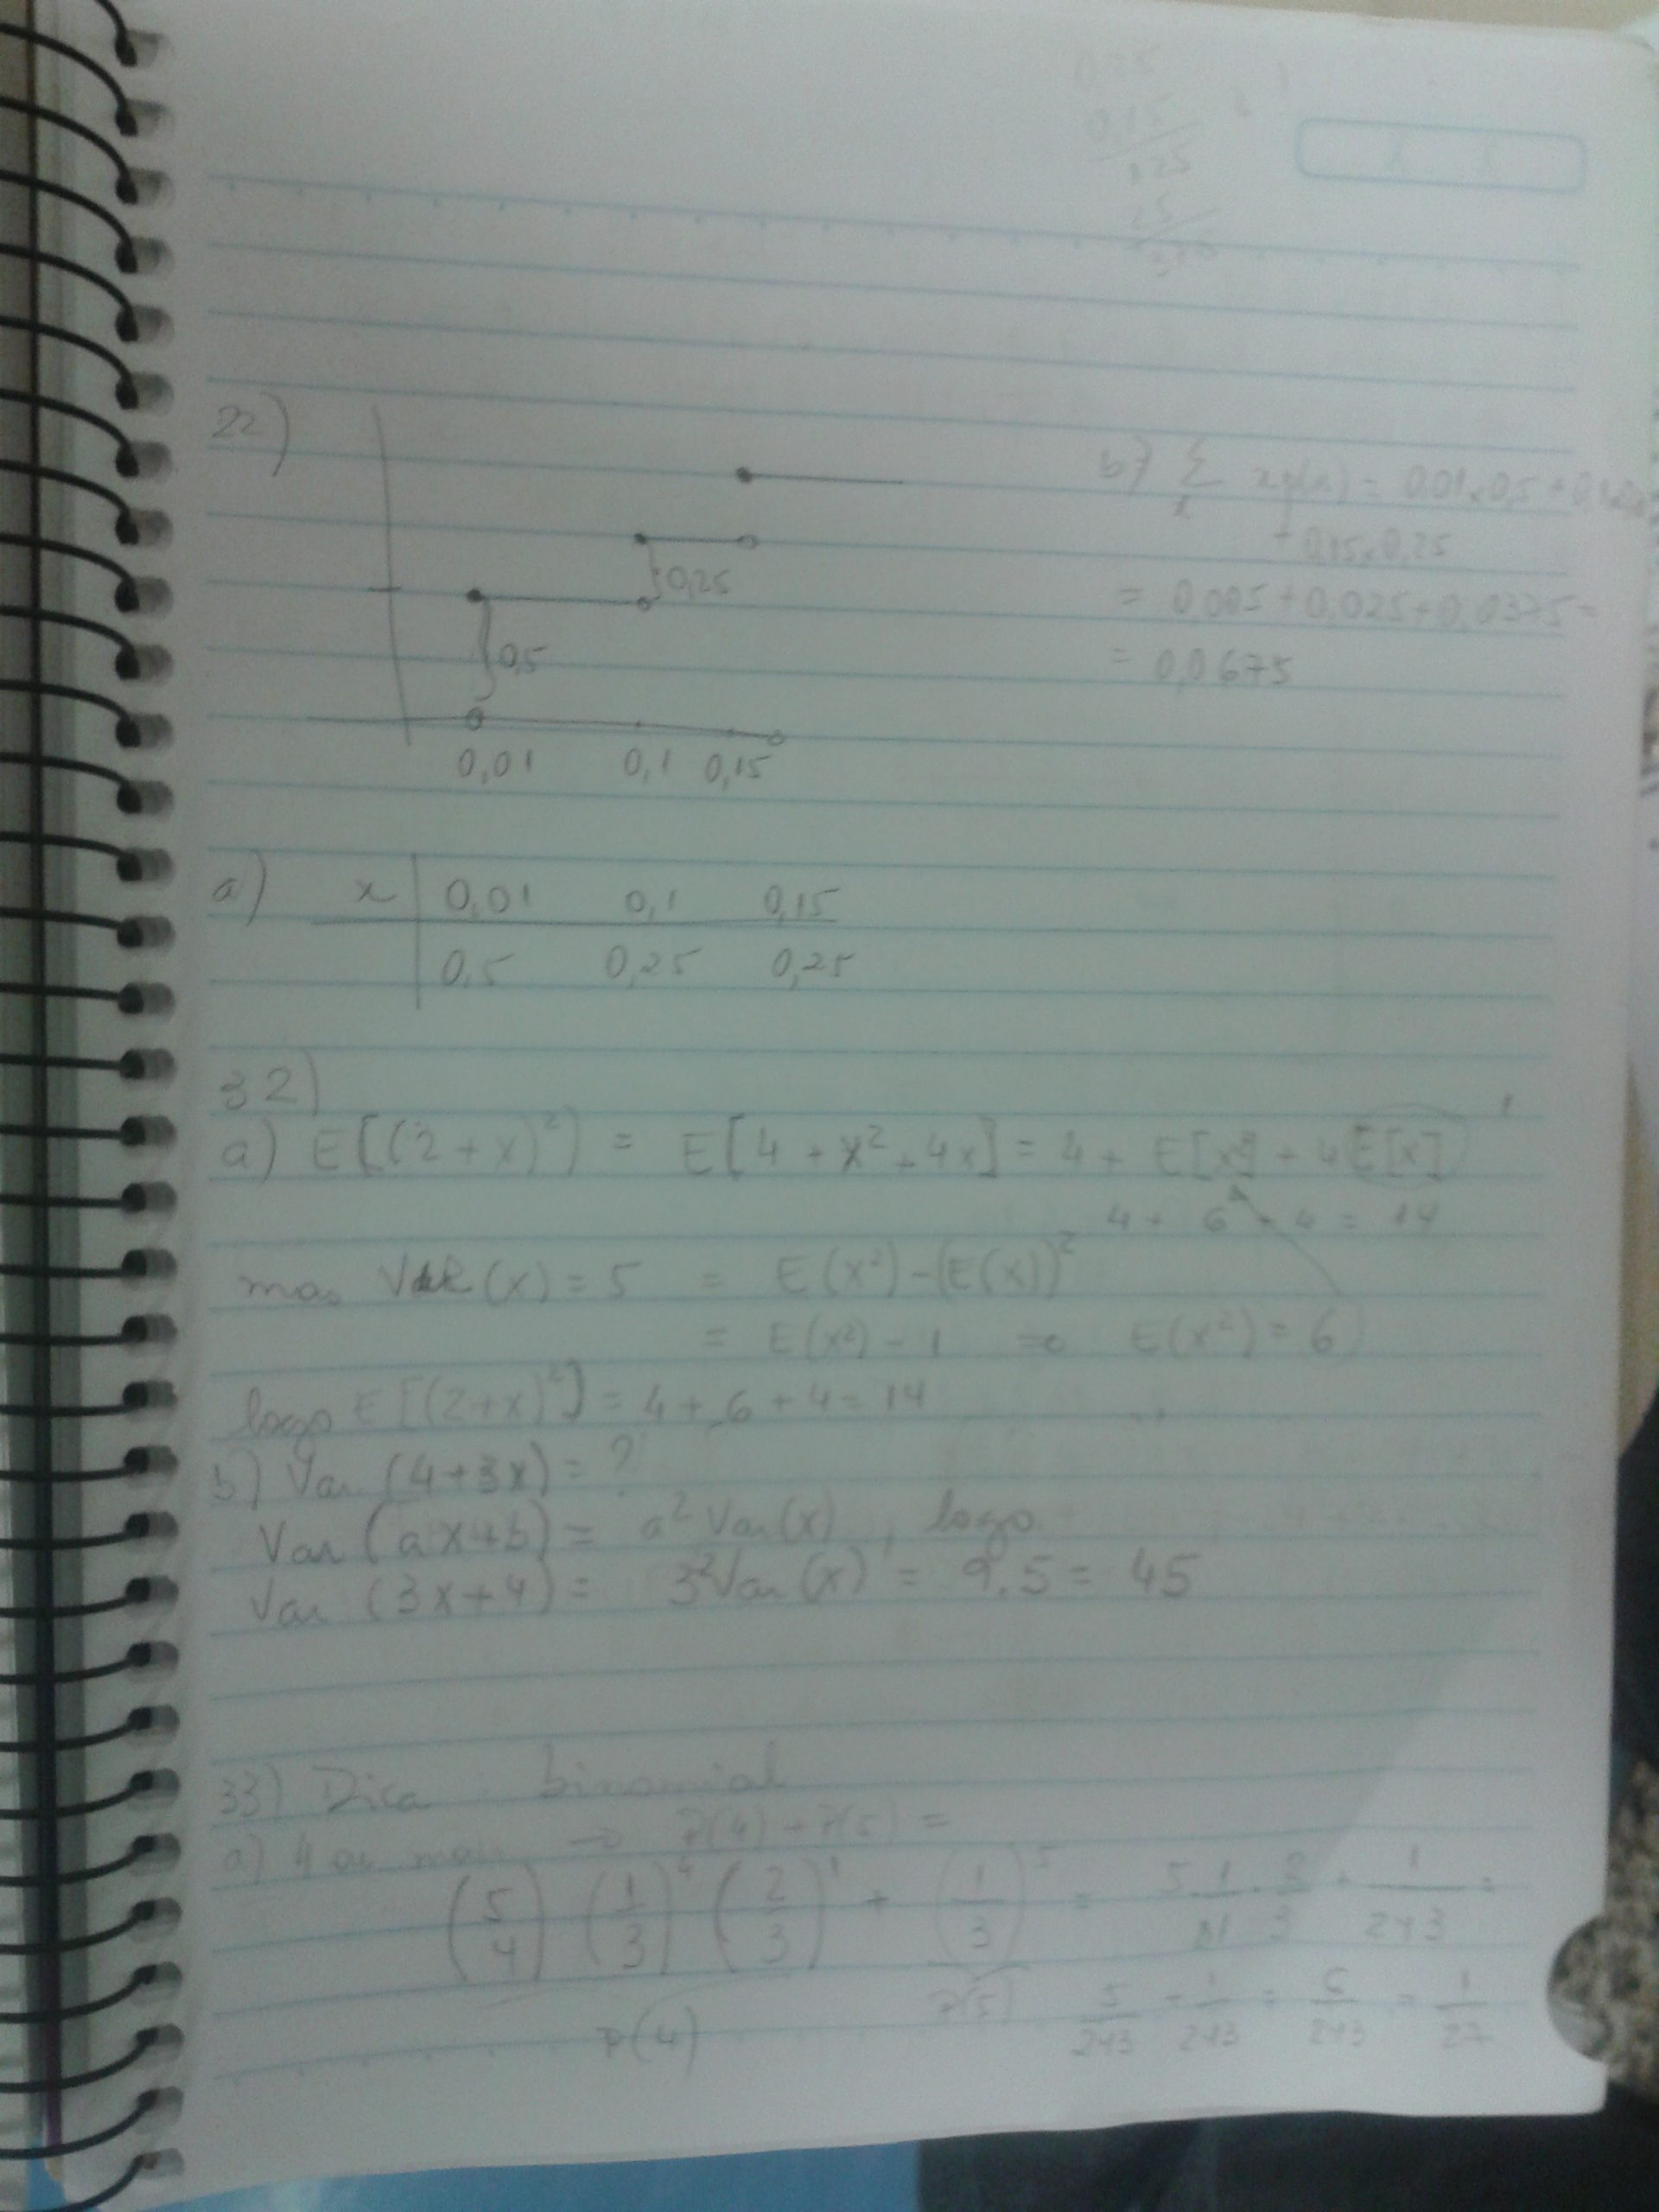 22)
0,25
0,5
0,01 0,1 0,15
b) Σ x p(x) = 0,01x0,5 + 0,1x
x
+ 0,15x0,25
= 0,005 + 0,025 + 0,0375 =
= 0,0675
a) x | 0,01 0,1 0,15
0,5 0,25 0,25
32)
a) E[(2+x)²] = E[4 + x² + 4x] = 4 + E[x²] + 4E[x]
4 + 6 + 4 = 14
mas VAR(x) = 5 = E(x²) - (E(x))²
= E(x²) - 1 ⇒ E(x²) = 6
logo E[(2+x)²] = 4 + 6 + 4 = 14
b) Var (4+3x) = ?
Var (ax+b) = a² Var(x), logo
Var (3x+4) = 3² Var(x) = 9.5 = 45
33) Dica: binomial
a) 4 ou mais → P(4) + P(5) =
(5 4) (1/3)⁴ (2/3)¹ + (1/3)⁵ = 5 1/81 . 2/3 + 1/243 =
P(4) P(5) 5/243 + 1/243 = 6/243 = 1/27